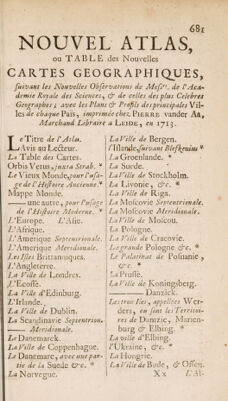 681
NOUVEL ATLAS,
ou TABLE des Nouvelles
CARTES GEOGRAPHIQUES,
suivant les Nouvelles Observations de Messrs. de l'Aca-
demie Royale des Sciences, & de celles des plus Celebres
Geographes; avec les Plans & Profils des principales Vil-
les de chaque Païs, imprimée chez PIERRE vander Aa,
Marchand Libraire à LEIDE, en 1713.
Le Titre de l'Atlas.
L'Avis au Lecteur.
La Table des Cartes.
Orbis Vetus, juxta Strab. *
Le Vieux Monde, pour l'usa-
ge de l'Histoire Ancienne. *
Mappe Monde.
— une autre, pour l'usage
de l'Histoire Moderne. *
L'Europe. L'Asie.
L'Afrique.
L'Amerique Septentrionale.
L'Amerique Meridionale.
Les Isles Brittanniques.
L'Angleterre.
La Ville de Londres.
L'Ecosse.
La Ville d'Edinburg.
L'Irlande.
La Ville de Dublin.
La Scandinavie Septentrion.
— Meridionale.
Le Danemarck.
La Ville de Coppenhague.
Le Danemarc, avec une par-
tie de la Suede &c. *
La Norvegue.
La Ville de Bergen.
l'Islande, suivant Blefkenius *
La Groenlande. *
La Suede.
La Ville de Stockholm.
La Livonie, &c. *
La Ville de Riga.
La Moscovie Septentrionale.
La Moscovie Meridionale.
La Ville de Moscou.
La Pologne.
La Ville de Cracovie.
La grande Pologne &c. *
Le Palatinat de Posnanie,
&c. *
La Prusse.
La Ville de Koningsberg.
— Danzick.
Les trois Iles, appellées Wer-
ders, ou sont les Territoi-
res de Dantzic, Marien-
burg & Elbing. *
La ville d'Elbing.
l'Ukraine, &c. *
La Hongrie.
La Ville de Bude, & Offen.
Xx L'Al-